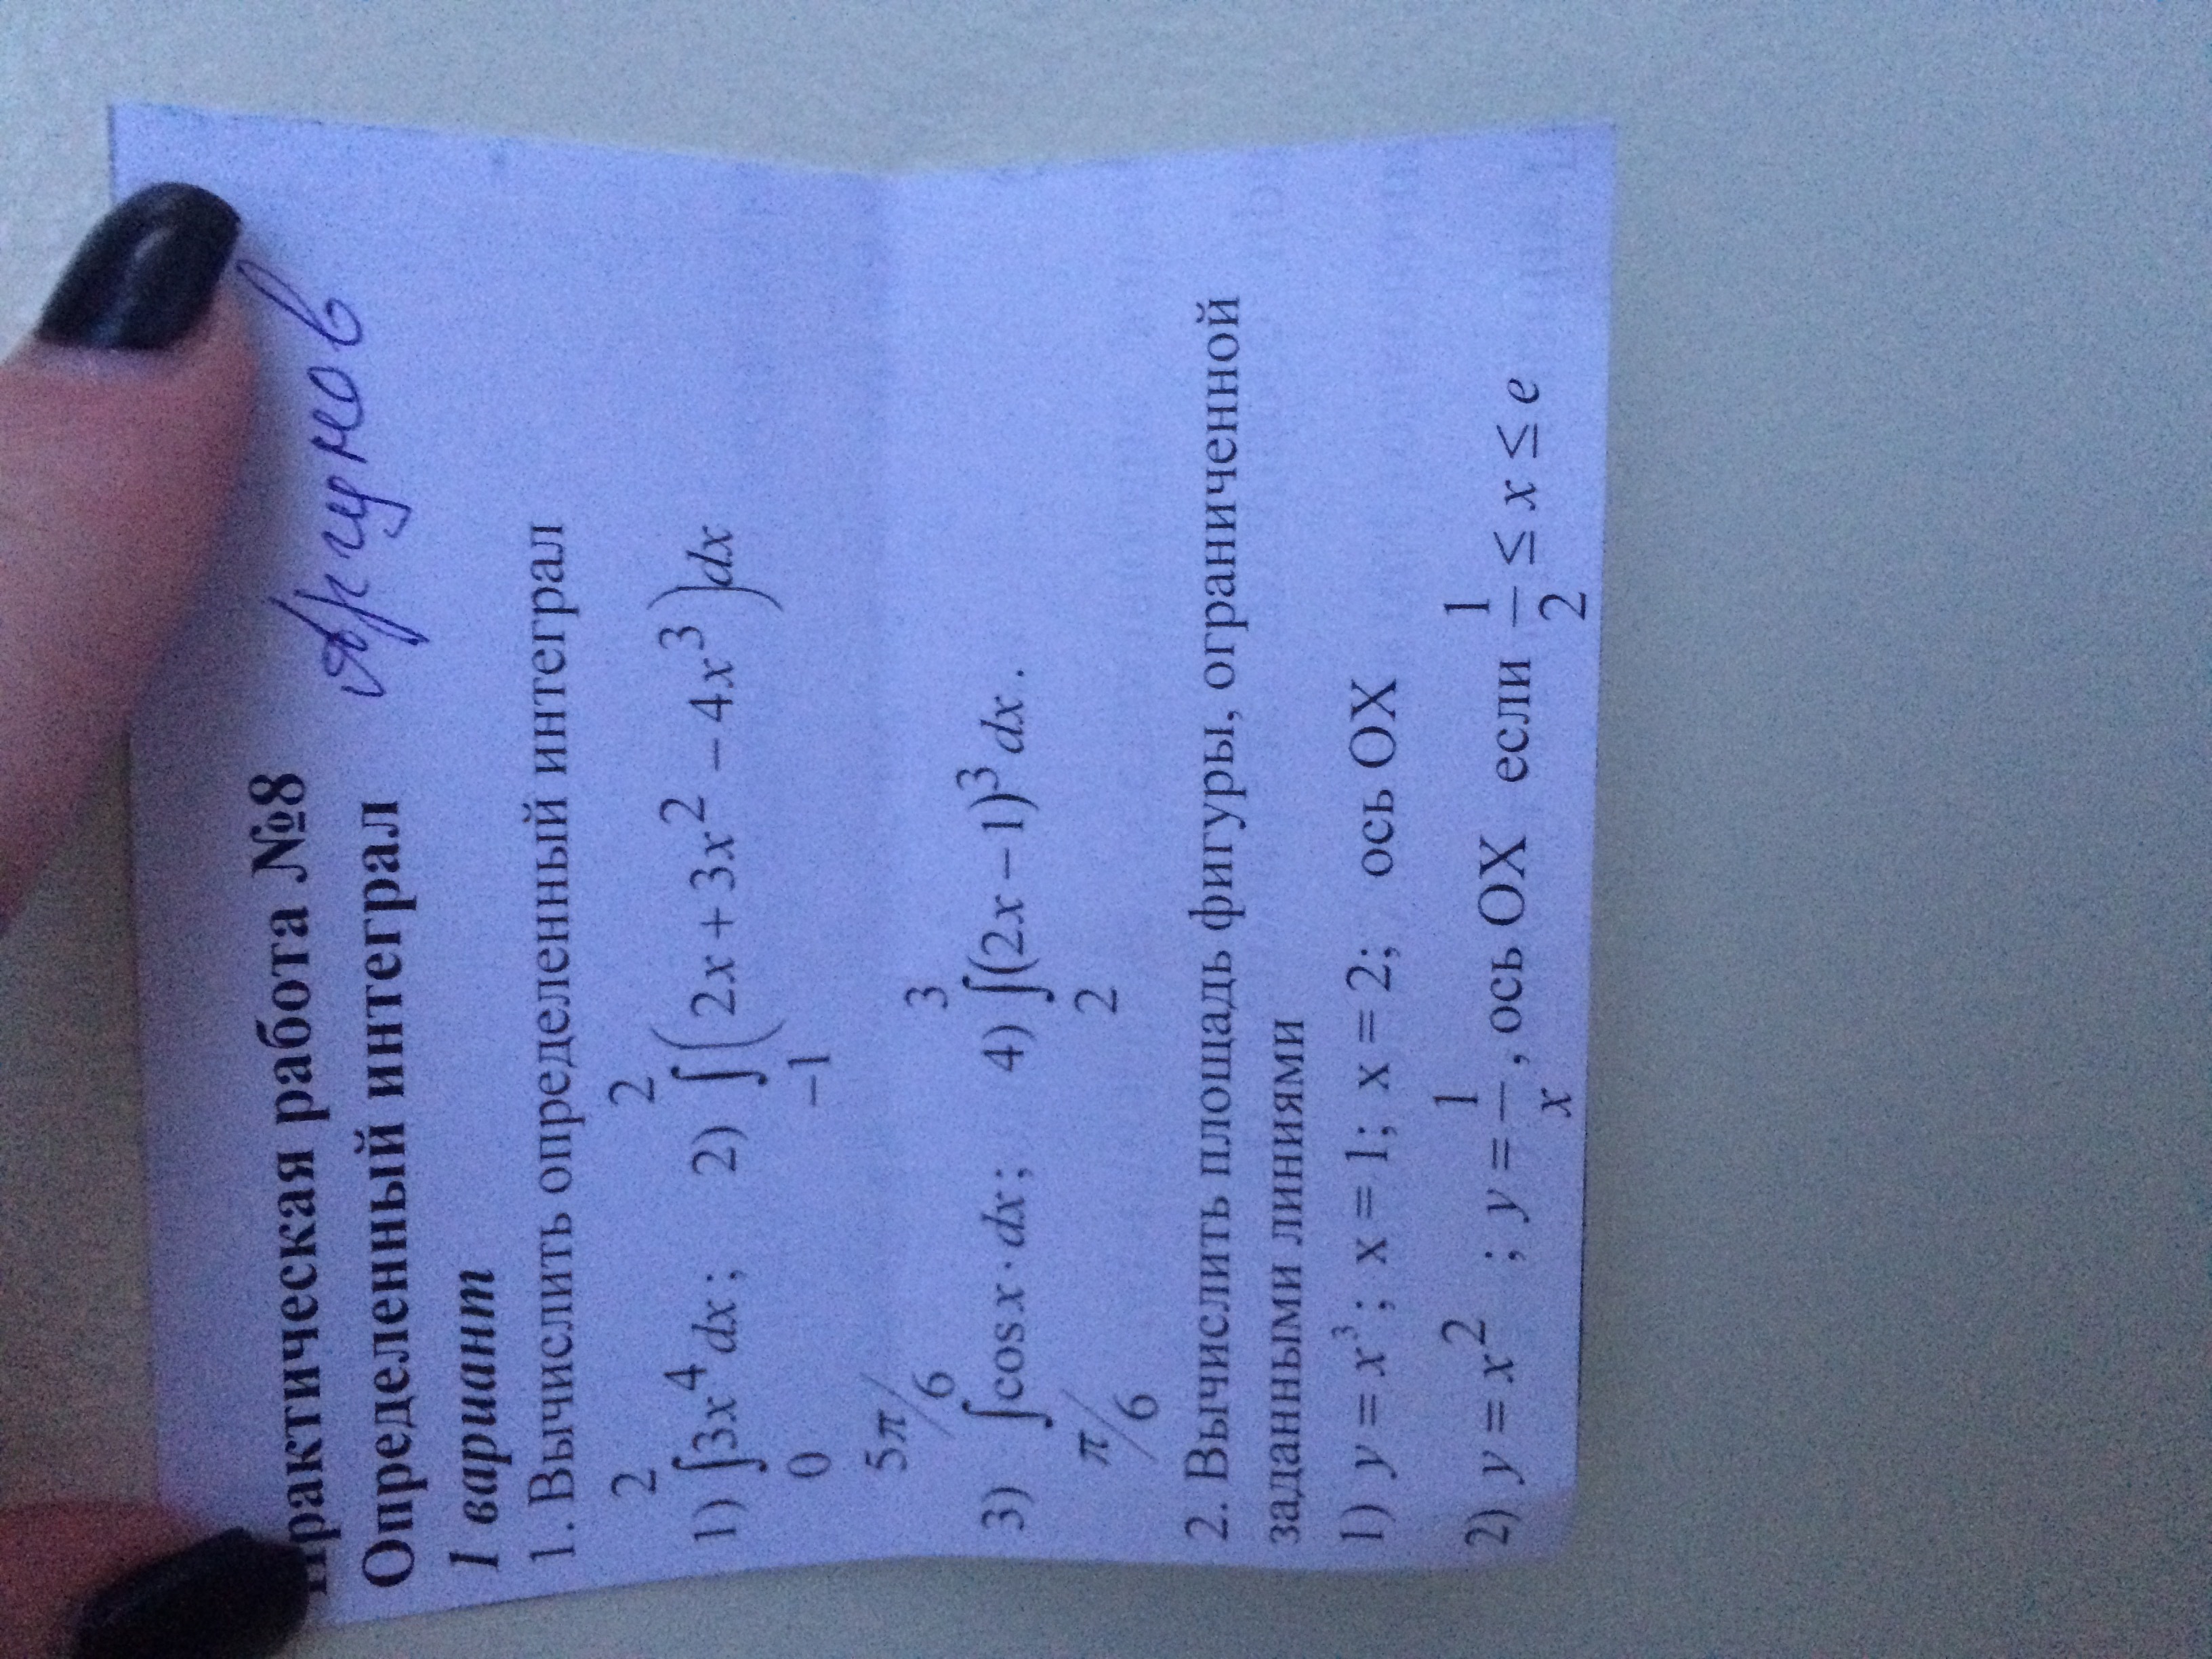 Практическая работа №8
Определенный интеграл
1 вариант
1. Вычислить определенный интеграл
1) ∫₀² 3x⁴ dx; 2) ∫₋₁² (2x + 3x² − 4x³)dx
3) ∫_{π/6}^{5π/6} cos x · dx; 4) ∫₂³ (2x − 1)³ dx.
2. Вычислить площадь фигуры, ограниченной
заданными линиями
1) y = x³; x = 1; x = 2; ось OX
2) y = x² ; y = 1/x, ось OX если 1/2 ≤ x ≤ e